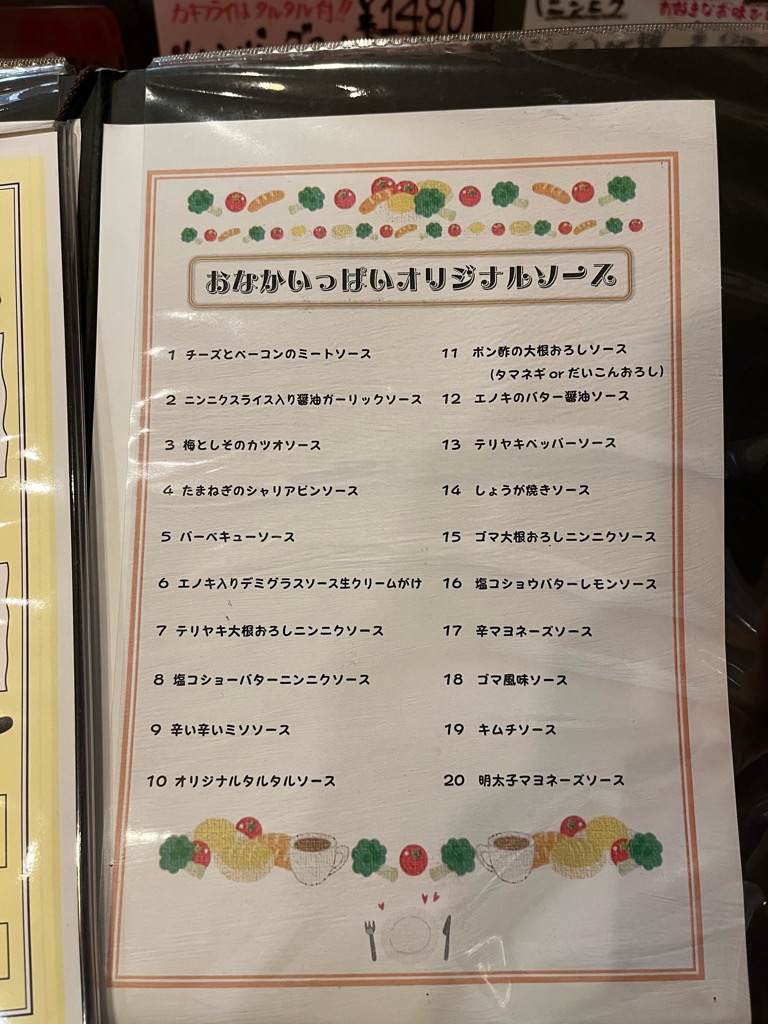 カキフライはタルタル付!! ¥1480
ニンニク
おなかいっぱいオリジナルソース
1 チーズとベーコンのミートソース
2 ニンニクスライス入り醤油ガーリックソース
3 梅としそのカツオソース
4 たまねぎのシャリアピンソース
5 バーベキューソース
6 エノキ入りデミグラスソース生クリームがけ
7 テリヤキ大根おろしニンニクソース
8 塩コショーバターニンニクソース
9 辛い辛いミソソース
10 オリジナルタルタルソース
11 ポン酢の大根おろしソース
(タマネギ or だいこんおろし)
12 エノキのバター醤油ソース
13 テリヤキペッパーソース
14 しょうが焼きソース
15 ゴマ大根おろしニンニクソース
16 塩コショウバターレモンソース
17 辛マヨネーズソース
18 ゴマ風味ソース
19 キムチソース
20 明太子マヨネーズソース